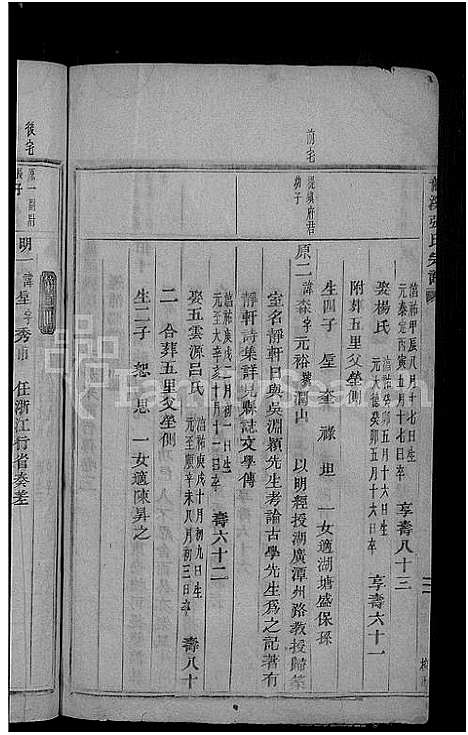 淳祐甲辰八月十七日生
元泰定丙寅五月十七日卒
享壽八十三
娶楊氏
淳祐癸卯五月十六日生
元大德癸卯五月十六日卒
享壽六十一
附葬五里父塋側
生四子 奎 祿 坦 一女適湖塘盛保孫
前宅
提鎮府君
幼子
原二
諱森字元裕號澗山 以明經授湖廣潭州路教授歸築
室名靜軒日與吳淵穎先生考論古學先生爲之記著有
靜軒詩集詳見縣誌文學傳
淳祐庚戌二月初一日生
元至大辛亥十月十一日卒
壽六十二
娶五雲源呂氏
淳祐庚戌十月初九日生
至順辛未八月初三日卒
壽八十
二 合葬五里父塋側
生二子 恕 思 一女適陳昇之
後宅
原一
長子
明一
諱 字秀 任浙江行省奏差